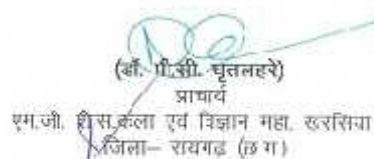 (डॉ. पी.सी. घृतलहरे)
प्राचार्य
एम.जी. शास. कला एवं विज्ञान महा. खरसिया
जिला– रायगढ़ (छ ग)